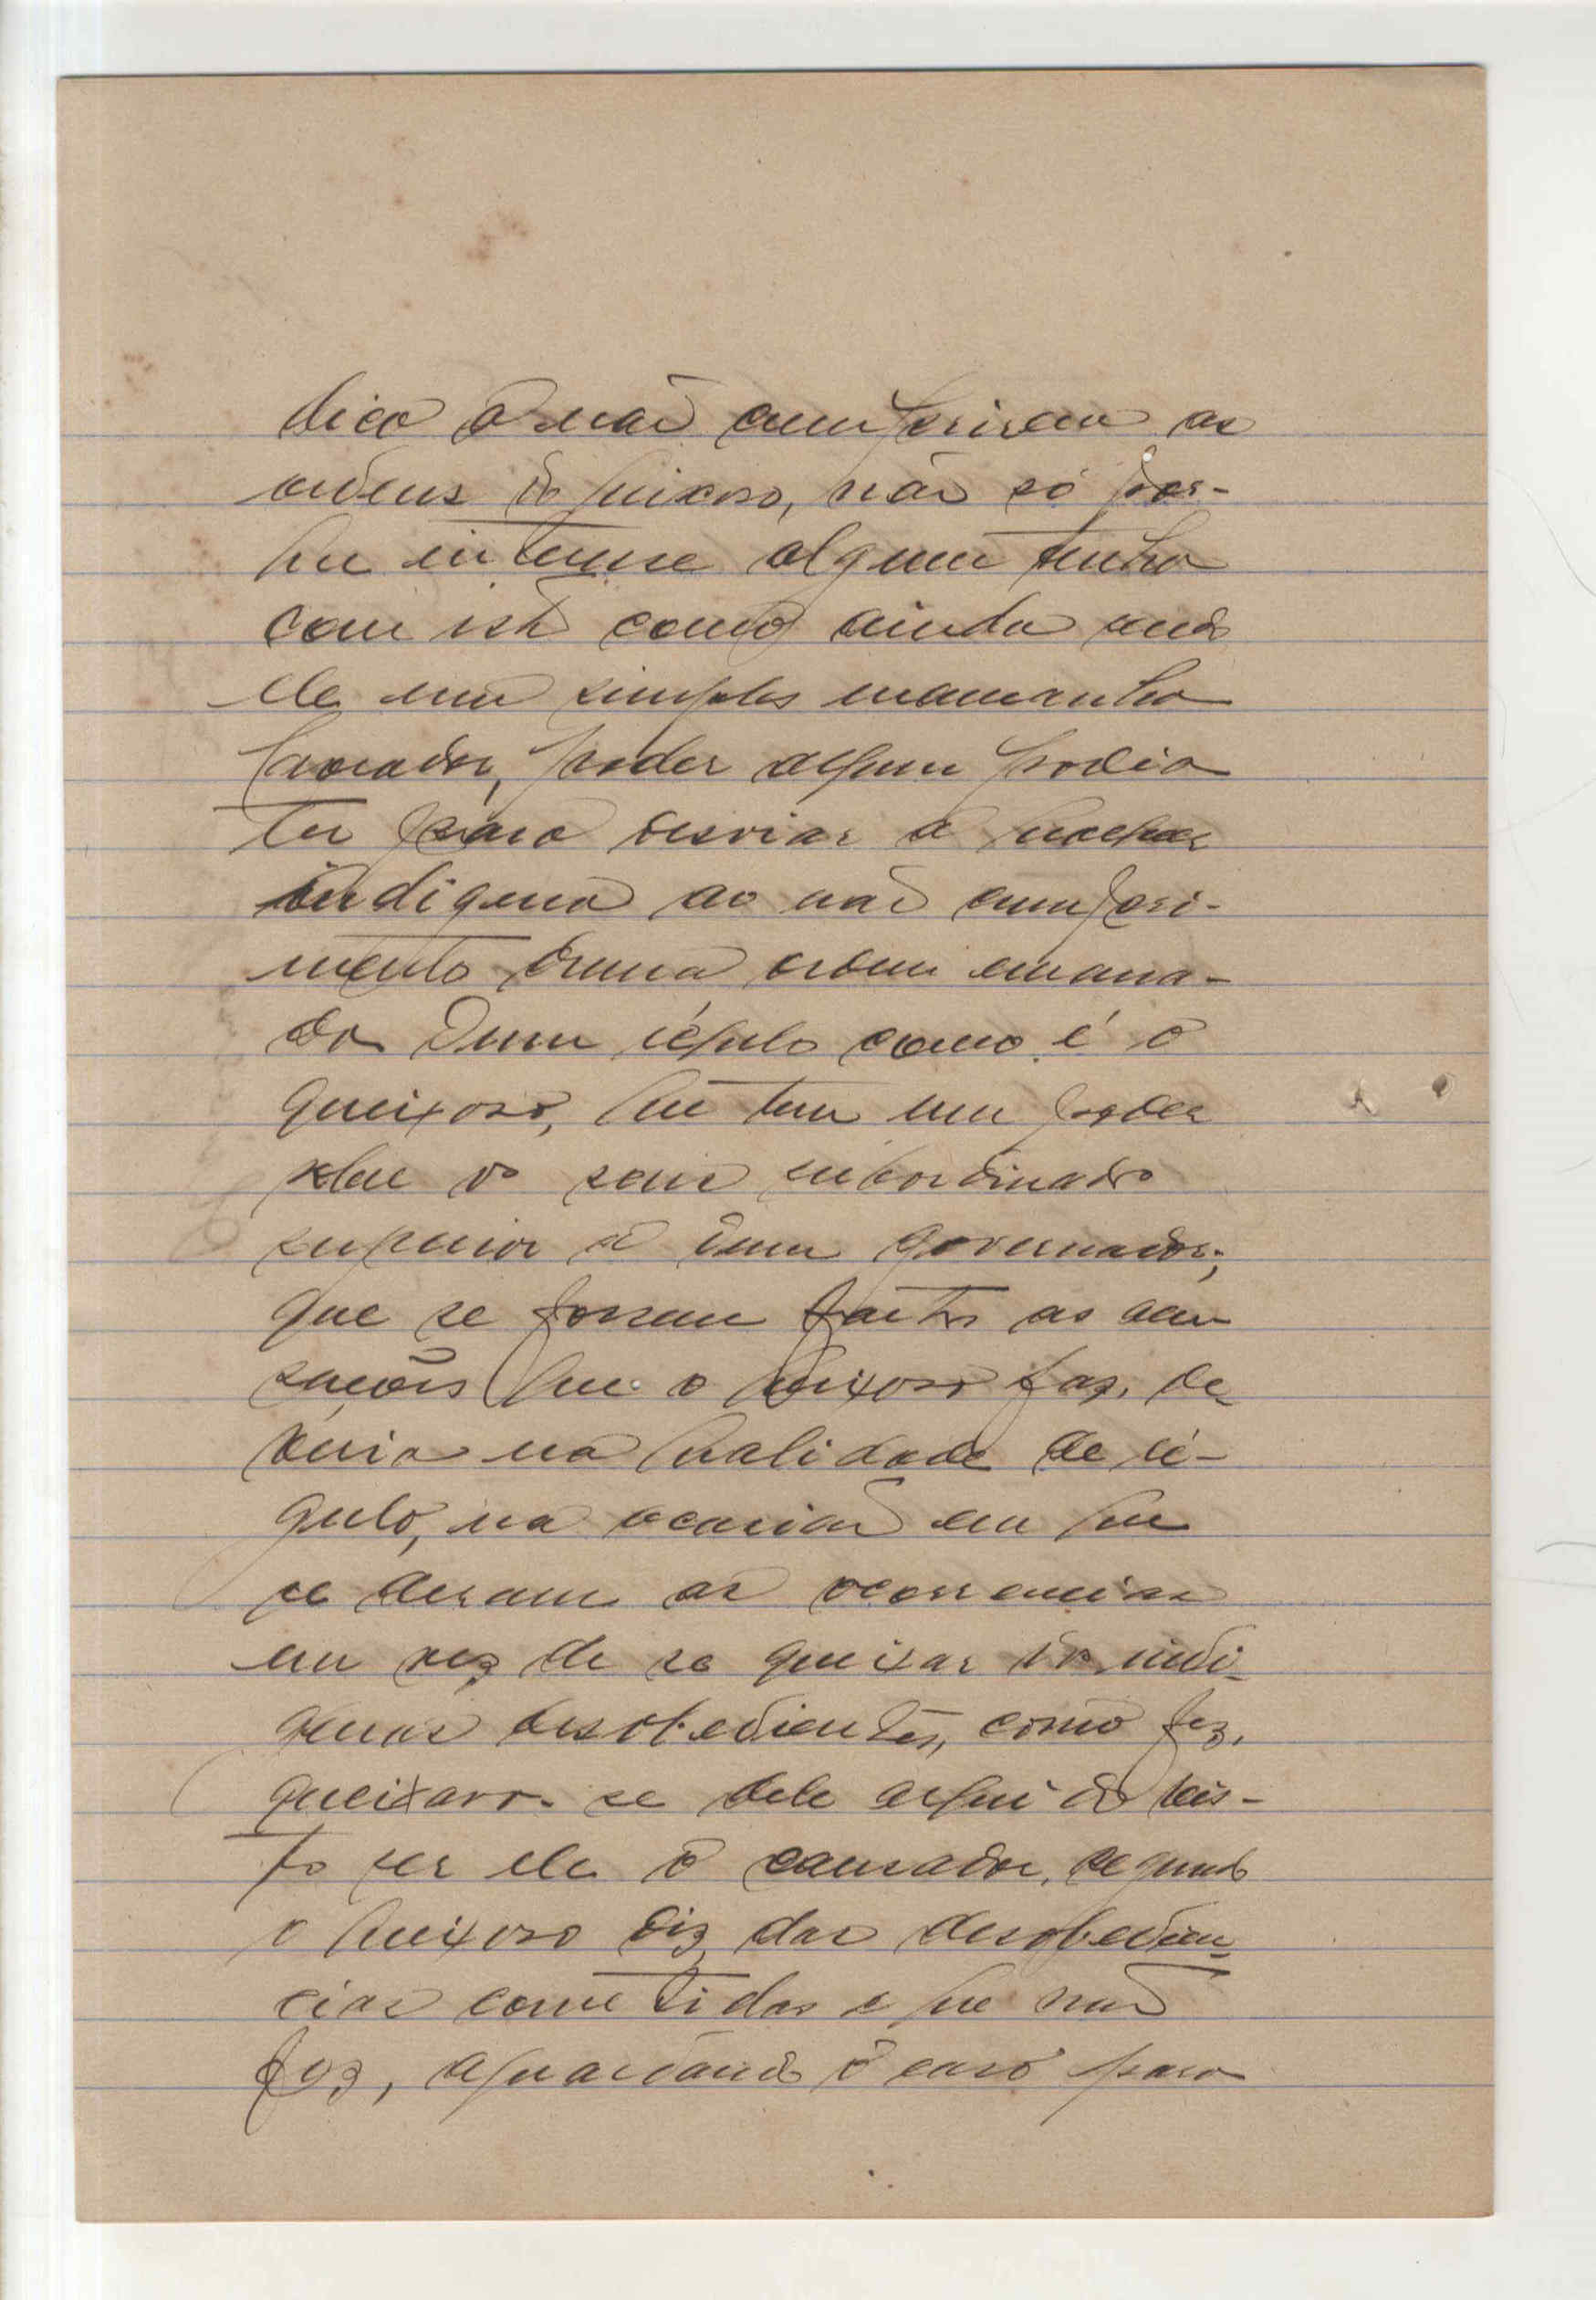 dico a não cumprirem as
ordens do queixoso, não só por-
que interesse algum tenho
com isto como ainda sendo
ele um simples
lavrador, poder algum podia
ter para desviar a
indigena ao não cumpri-
mento duma ordem emana-
da dum régulo como é o
queixoso, que tem um poder
subordinado
superior a dum governador;
que se fossem factos as acu
sações que o queixoso faz, de
veria na qualidade de ré-
gulo, na ocasião em que
se deram as ocorrencias
em vez de se queixar dos indi-
genas desobedientes, como fez,
queixar-se dele arguido vis-
to ser ele o causador, segundo
o queixoso diz, das desobedien
cias cometidas e que não
fez, aguardando o caso para